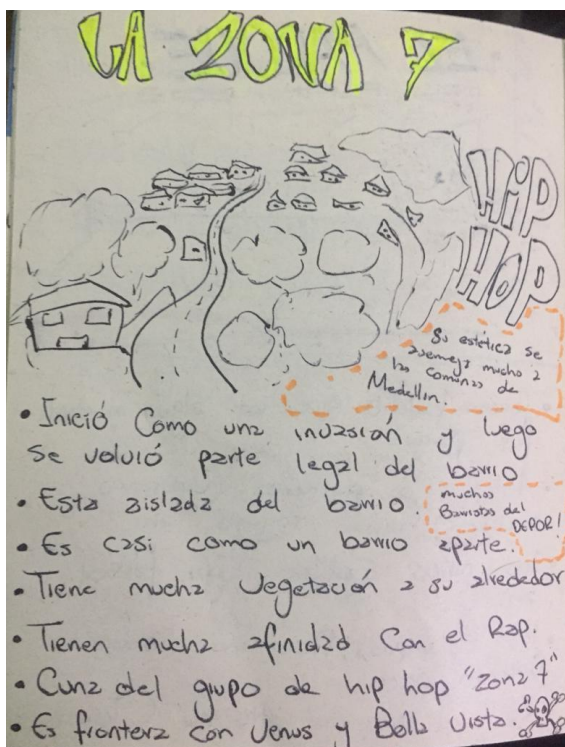 LA ZONA 7
HIP
HOP
Su estética se
asemeja mucho a
las comunas de
Medellin.
• Inició Como una invasión y luego
se volvió parte legal del barrio
• Esta aislada del barrio.
muchos
Barristas del
DEPOR!
• Es casi como un barrio aparte.
• Tiene mucha vegetación a su alrededor
• Tienen mucha afinidad con el Rap.
• Cuna del grupo de hip hop "Zona 7"
• Es frontera con Venus y Bella Vista.